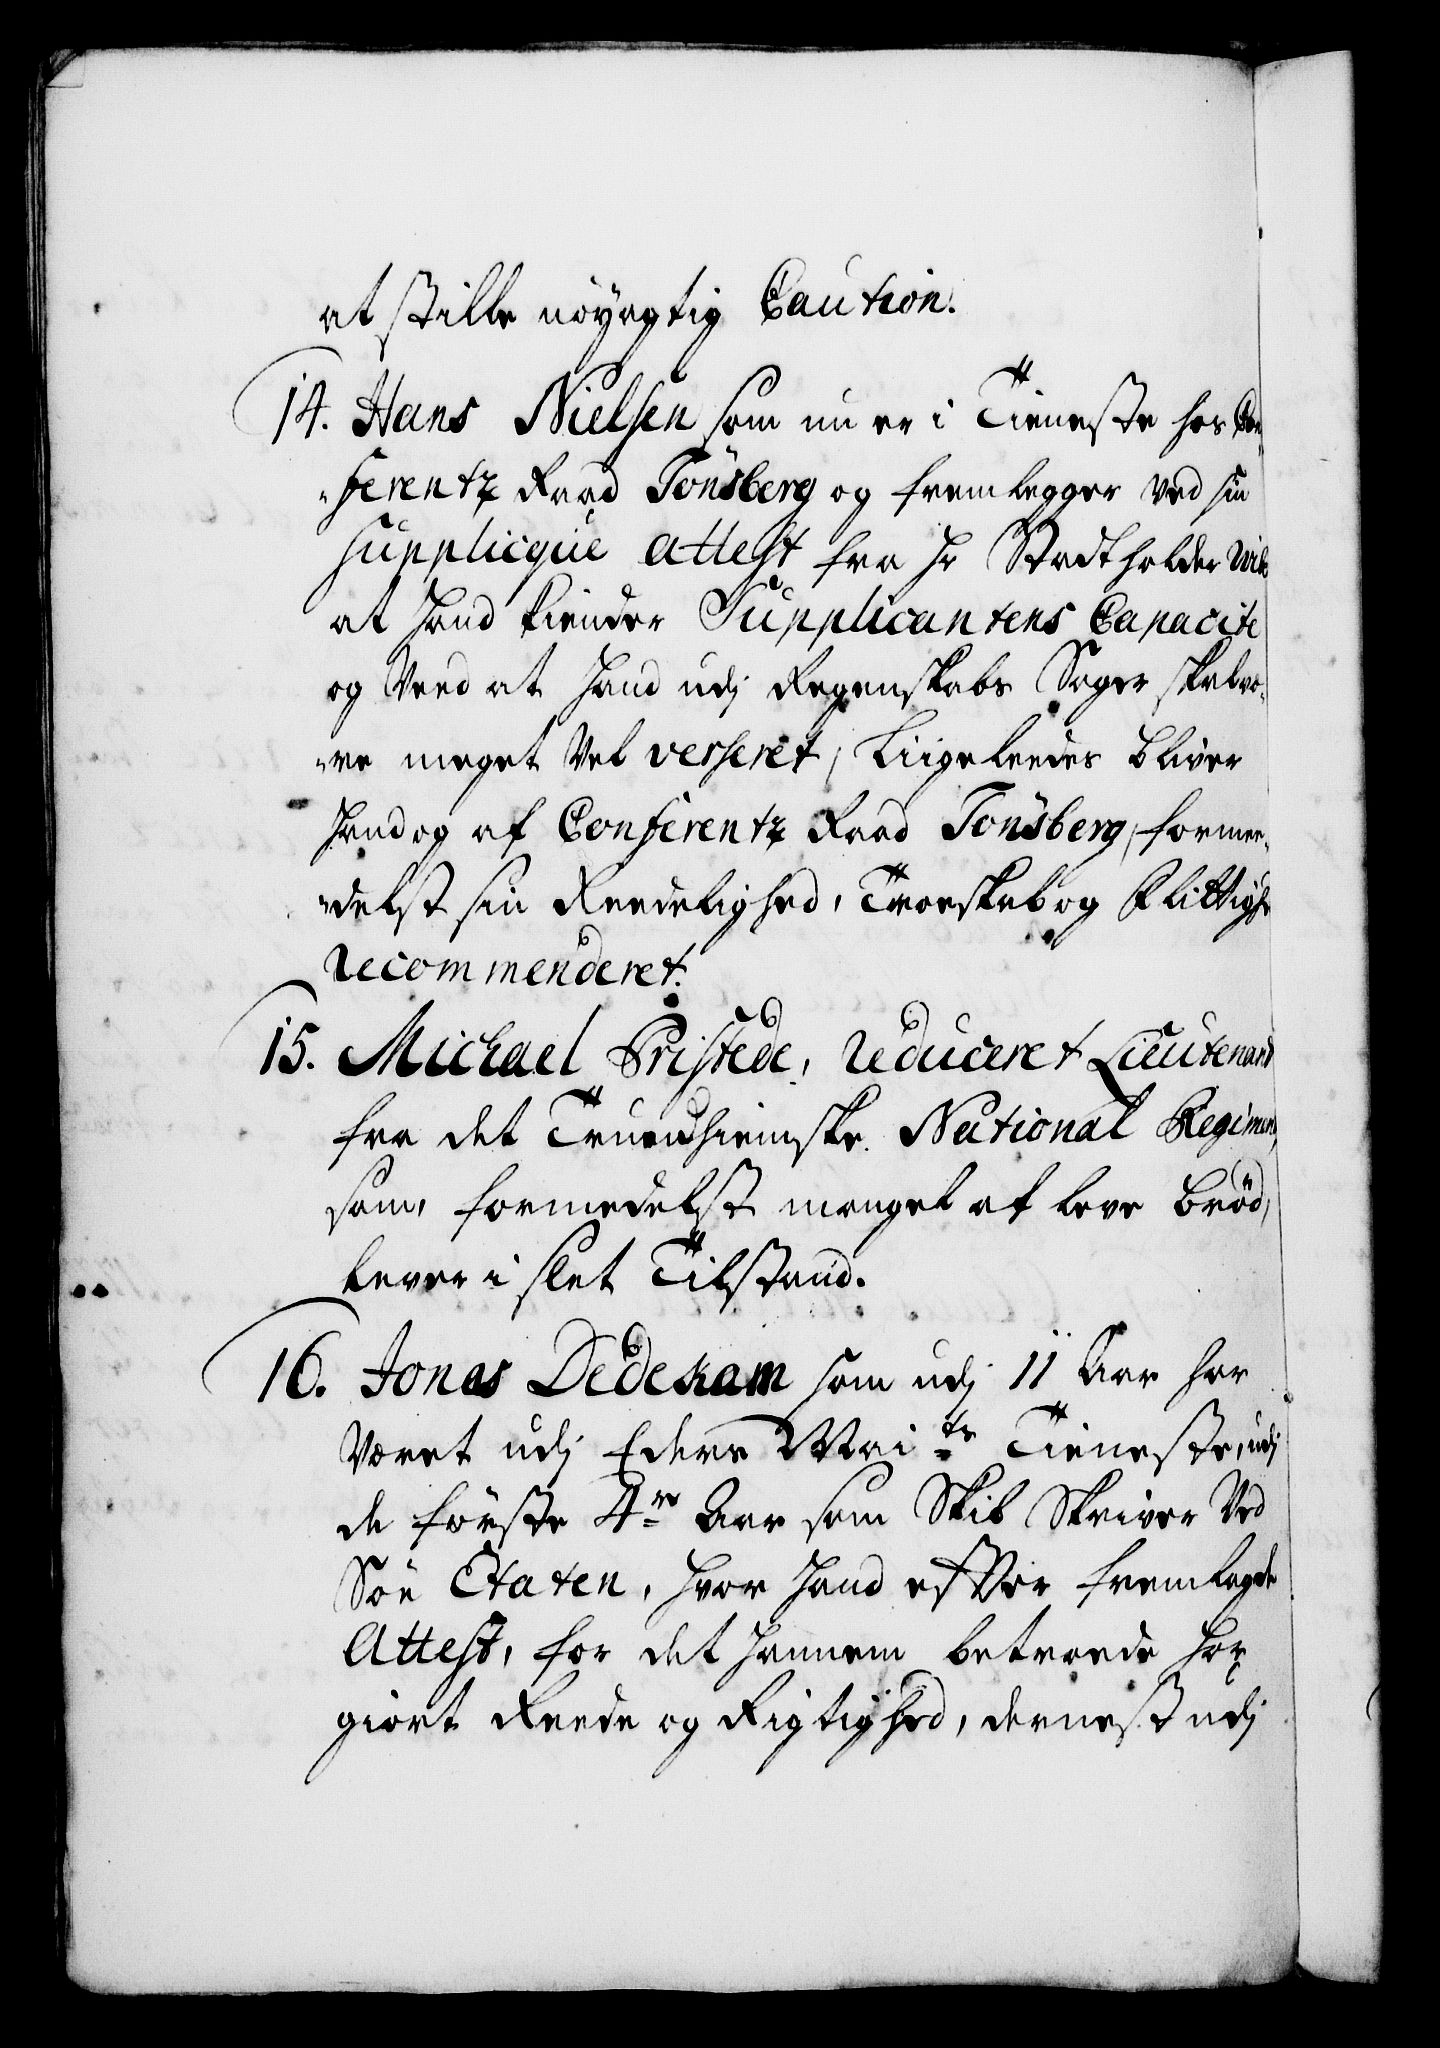 at stille nöyagtig Caution.
14. Hans Nielsen som nu er i Tieneste hos Con
„ferentz Raad Tönsberg og fremlegger ved sin
Supplicque Attest fra Hr Stadtholder Wibe
at hand kiender Supplicantens Capacite
og Veed at hand udj Regenskabs Sager skal væ„
„re meget Vel verseret, Liigeleedes bliver
hand og af Conferentz Raad Tönsberg, formee„
„delst sin Reedelighed, Troeskab og Flittighed
Recommenderet.
15. Michael Pristede, Reduceret Lieutenand
fra det Trundhiemske National Regiment,
som, formedelst mangel af leve Bröd,
lever i slet Tilstand.
16. Jonas Dedekam som udj 11 Aar har
Været udj Eders Maits Tieneste, udj
de förste 4re Aar som Skib Skriver Ved
Söe Etaten, hvor hand efter fremlagde
Attest, for det hannem betroede har
giort Reede og Rigtighed, dernest udj